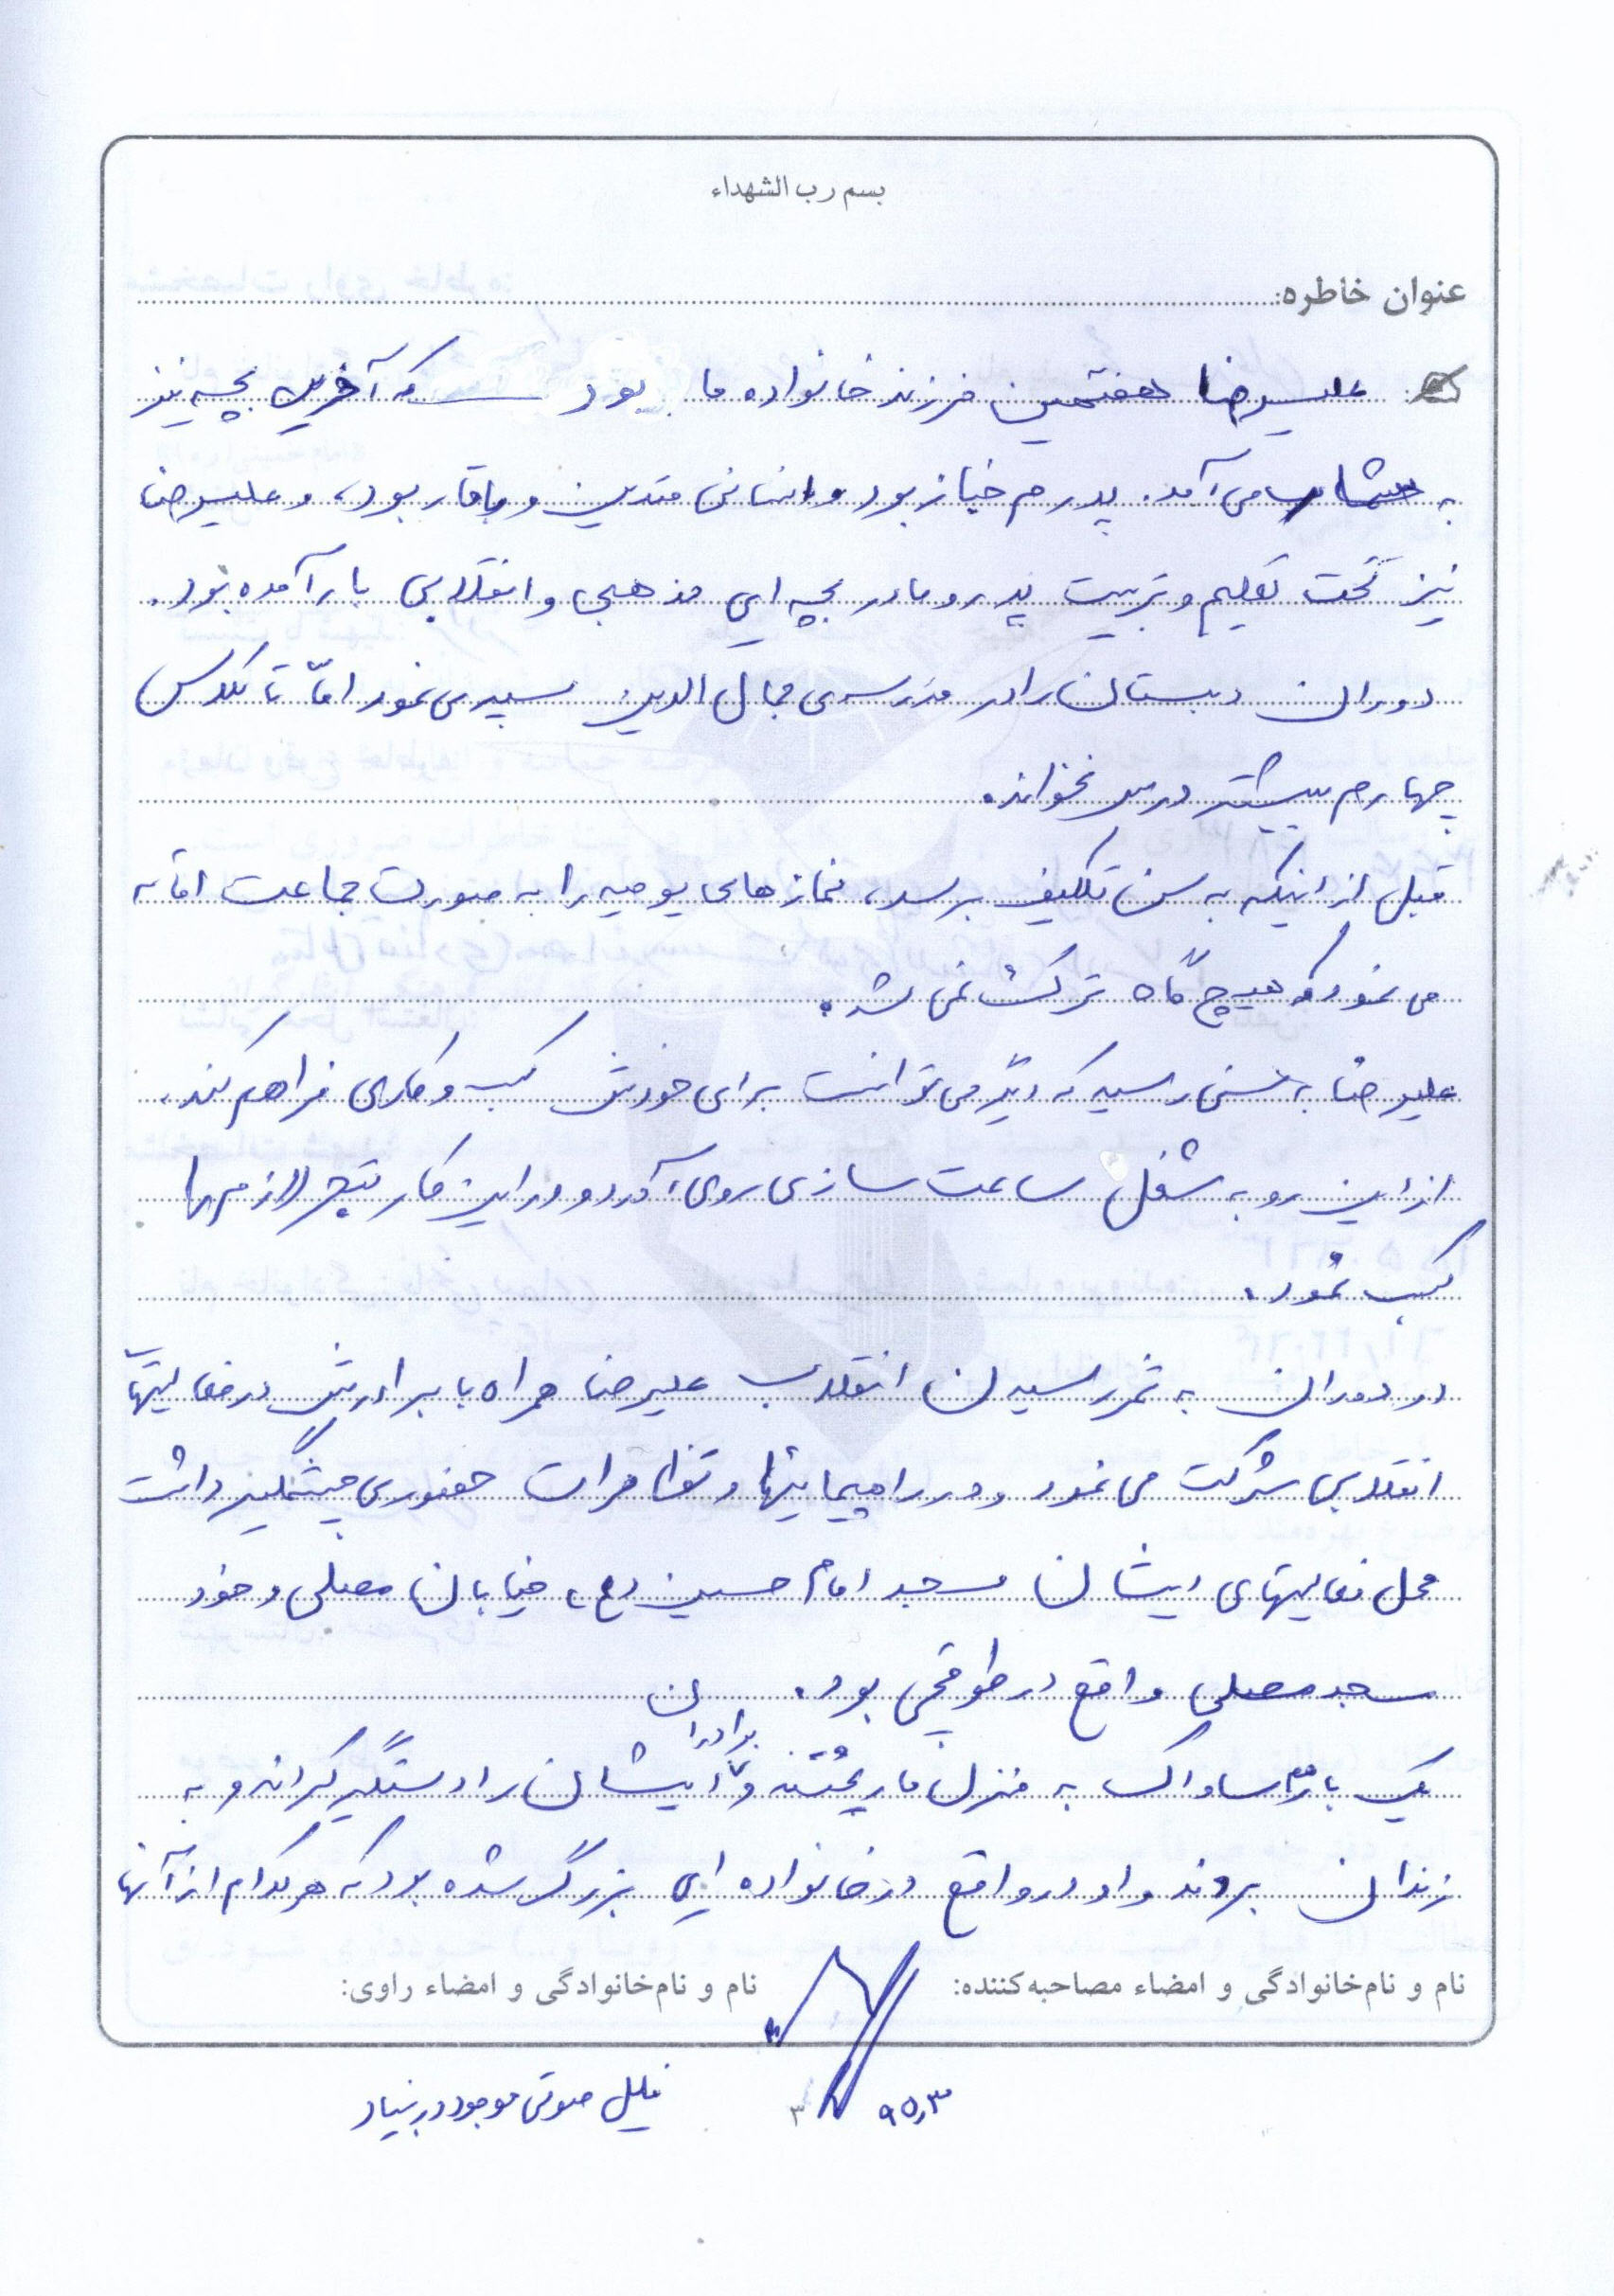 بسم رب الشهداء
عنوان خاطره:
علیرضا هفتمین فرزند خانواده ما بود که آخرین بچه نیز
به شمار می‌آمد. پدرم خباز بود و انسانی متدین و باوقار بود، و علیرضا
نیز تحت تعلیم و تربیت پدر و مادر بچه ایی مذهبی و انقلابی بار آمده بود.
دوران دبستان را در مدرسه‌ی جمال الدین سپری نمود امّا تا کلاس
چهارم بیشتر درس نخواند.
قبل از اینکه به سن تکلیف برسد، نمازهای یومیه را به صورت جماعت اقامه
می نمود که هیچ گاه ترکش نمی شد.
علیرضا به سنی رسید که دیگر می توانست برای خودش کسب و کاری فراهم کند،
از این رو به شغل ساعت سازی روی آورد و در این کار تبحر لازم را
کسب نمود.
در دوران به ثمر رسیدن انقلاب علیرضا همراه با برادرش در فعالیتهای
انقلابی شرکت می نمود و در راهپیمایی‌ها و تظاهرات حضوری چشمگیر داشت
محل فعالیتهای ایشان مسجد امام حسین (ع)، خیابان مصلی و خود
مسجد مصلی واقع در طوقچی بود.
یک بار هم ساواک به منزل ما ریختند و برادران ایشان را دستگیر کردند و به
زندان بردند و او در واقع در خانواده ایی بزرگ شده بود که هر کدام از آنها
نام و نام‌خانوادگی و امضاء مصاحبه‌کننده: نام و نام‌خانوادگی و امضاء راوی:
۹۵٫۳ ۳ فایل صوتی موجود در بنیاد